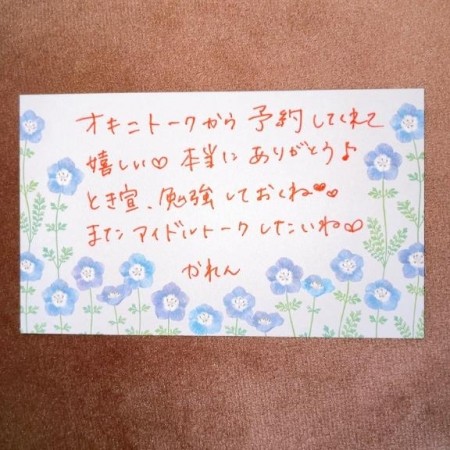 オキニトークから 予約してくれて
嬉しい♡ 本当に ありがとう♪
とき宣、勉強しておくね❤♡
またアイドルトークしたいね♡
かれん